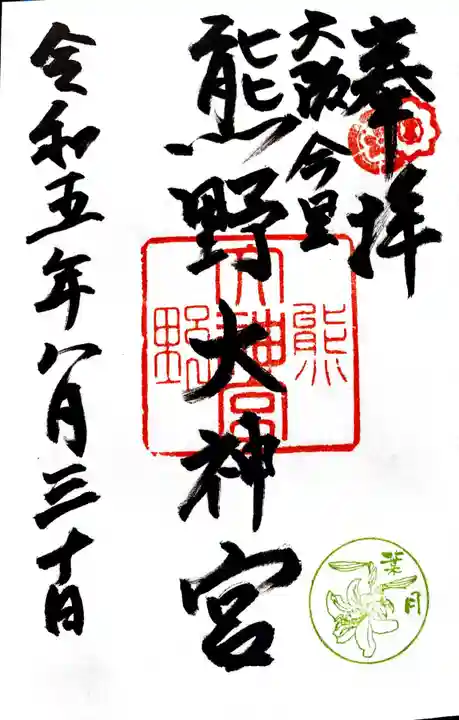 奉拝
大阪今里
熊野大神宮
熊野大神宮
葉月
令和五年八月三十日